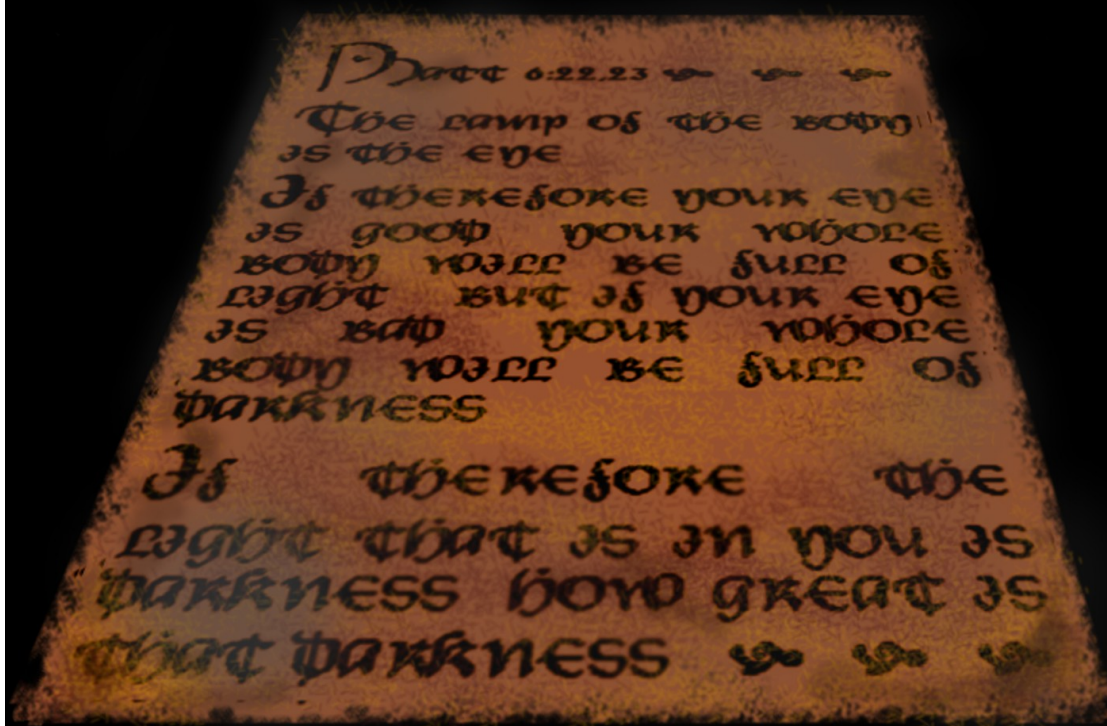 Matt 6:22,23
The lamp of the body
is the eye
If therefore your eye
is good your whole
body will be full of
light but if your eye
is bad your whole
body will be full of
darkness
If therefore the
light that is in you is
darkness how great is
that darkness